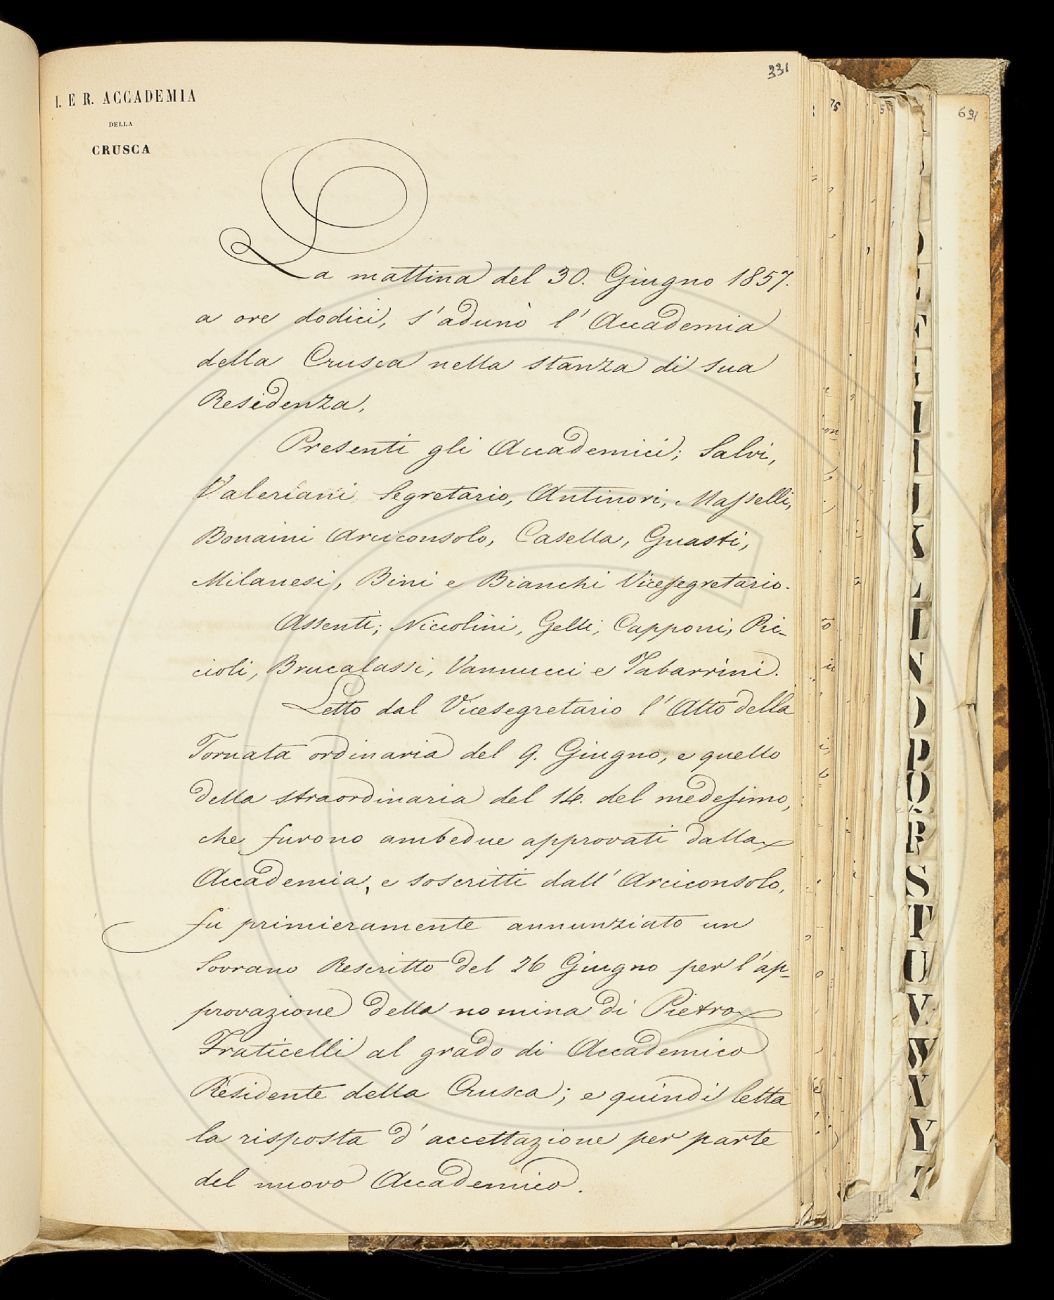 331
I. E R. ACCADEMIA
DELLA
CRUSCA
La mattina del 30. Giugno 1857.
a ore dodici, s'adunò l'Accademia
della Crusca nella stanza di sua
Residenza.
Presenti gli Accademici; Salvi,
Valeriani Segretario, Antinori, Masselli,
Bonaini Arciconsolo, Casella, Guasti,
Milanesi, Bini e Bianchi Vicesegretario.
Assenti; Niccolini, Gelli, Capponi, Ric-
cioli, Brucalassi, Vannucci e Tabarrini.
Letto dal Vicesegretario l'Atto della
Tornata ordinaria del 9. Giugno, e quello
della straordinaria del 14. del medesimo,
che furono ambedue approvati dalla
Accademia, e soscritti dall'Arciconsolo,
fu primieramente annunziato un
Sovrano Rescritto del 26 Giugno per l'ap-
provazione della nomina di Pietro
Fraticelli al grado di Accademico
Residente della Crusca; e quindi letta
la risposta d'accettazione per parte
del nuovo Accademico.